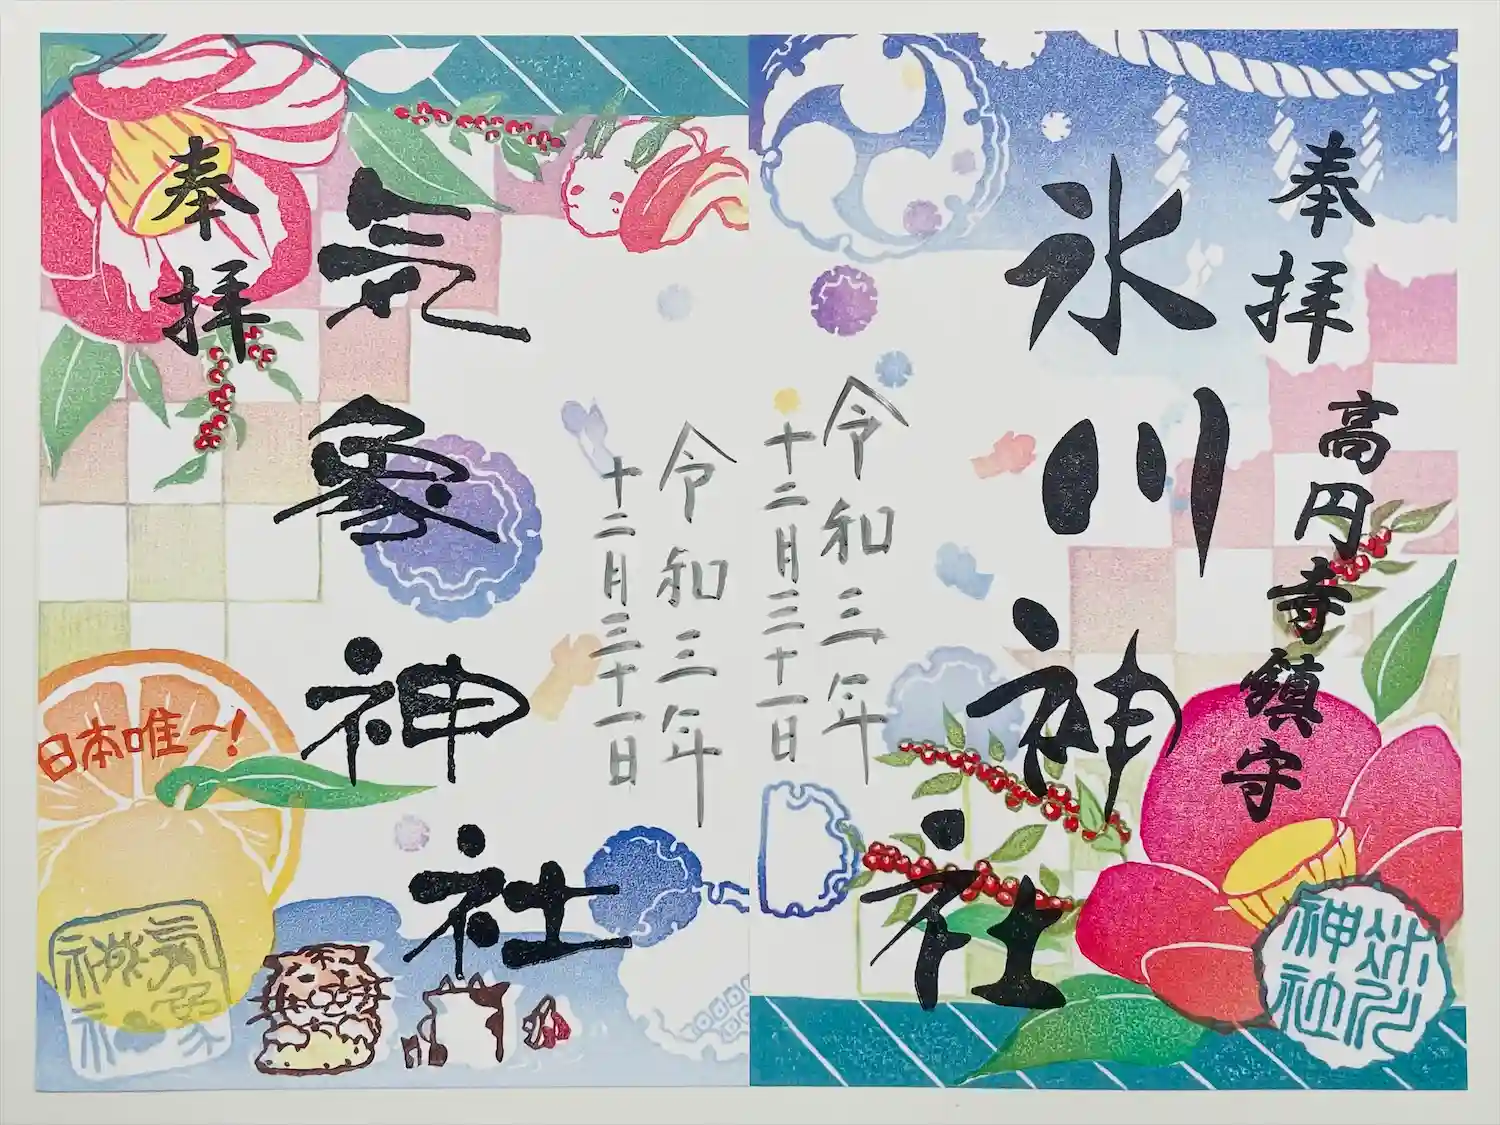 奉拝
高円寺鎮守
氷川神社
令和三年
十二月三十一日
氷川
神社
令和三年
十二月三十一日
気象神社
奉拝
日本唯一!
気象
神社